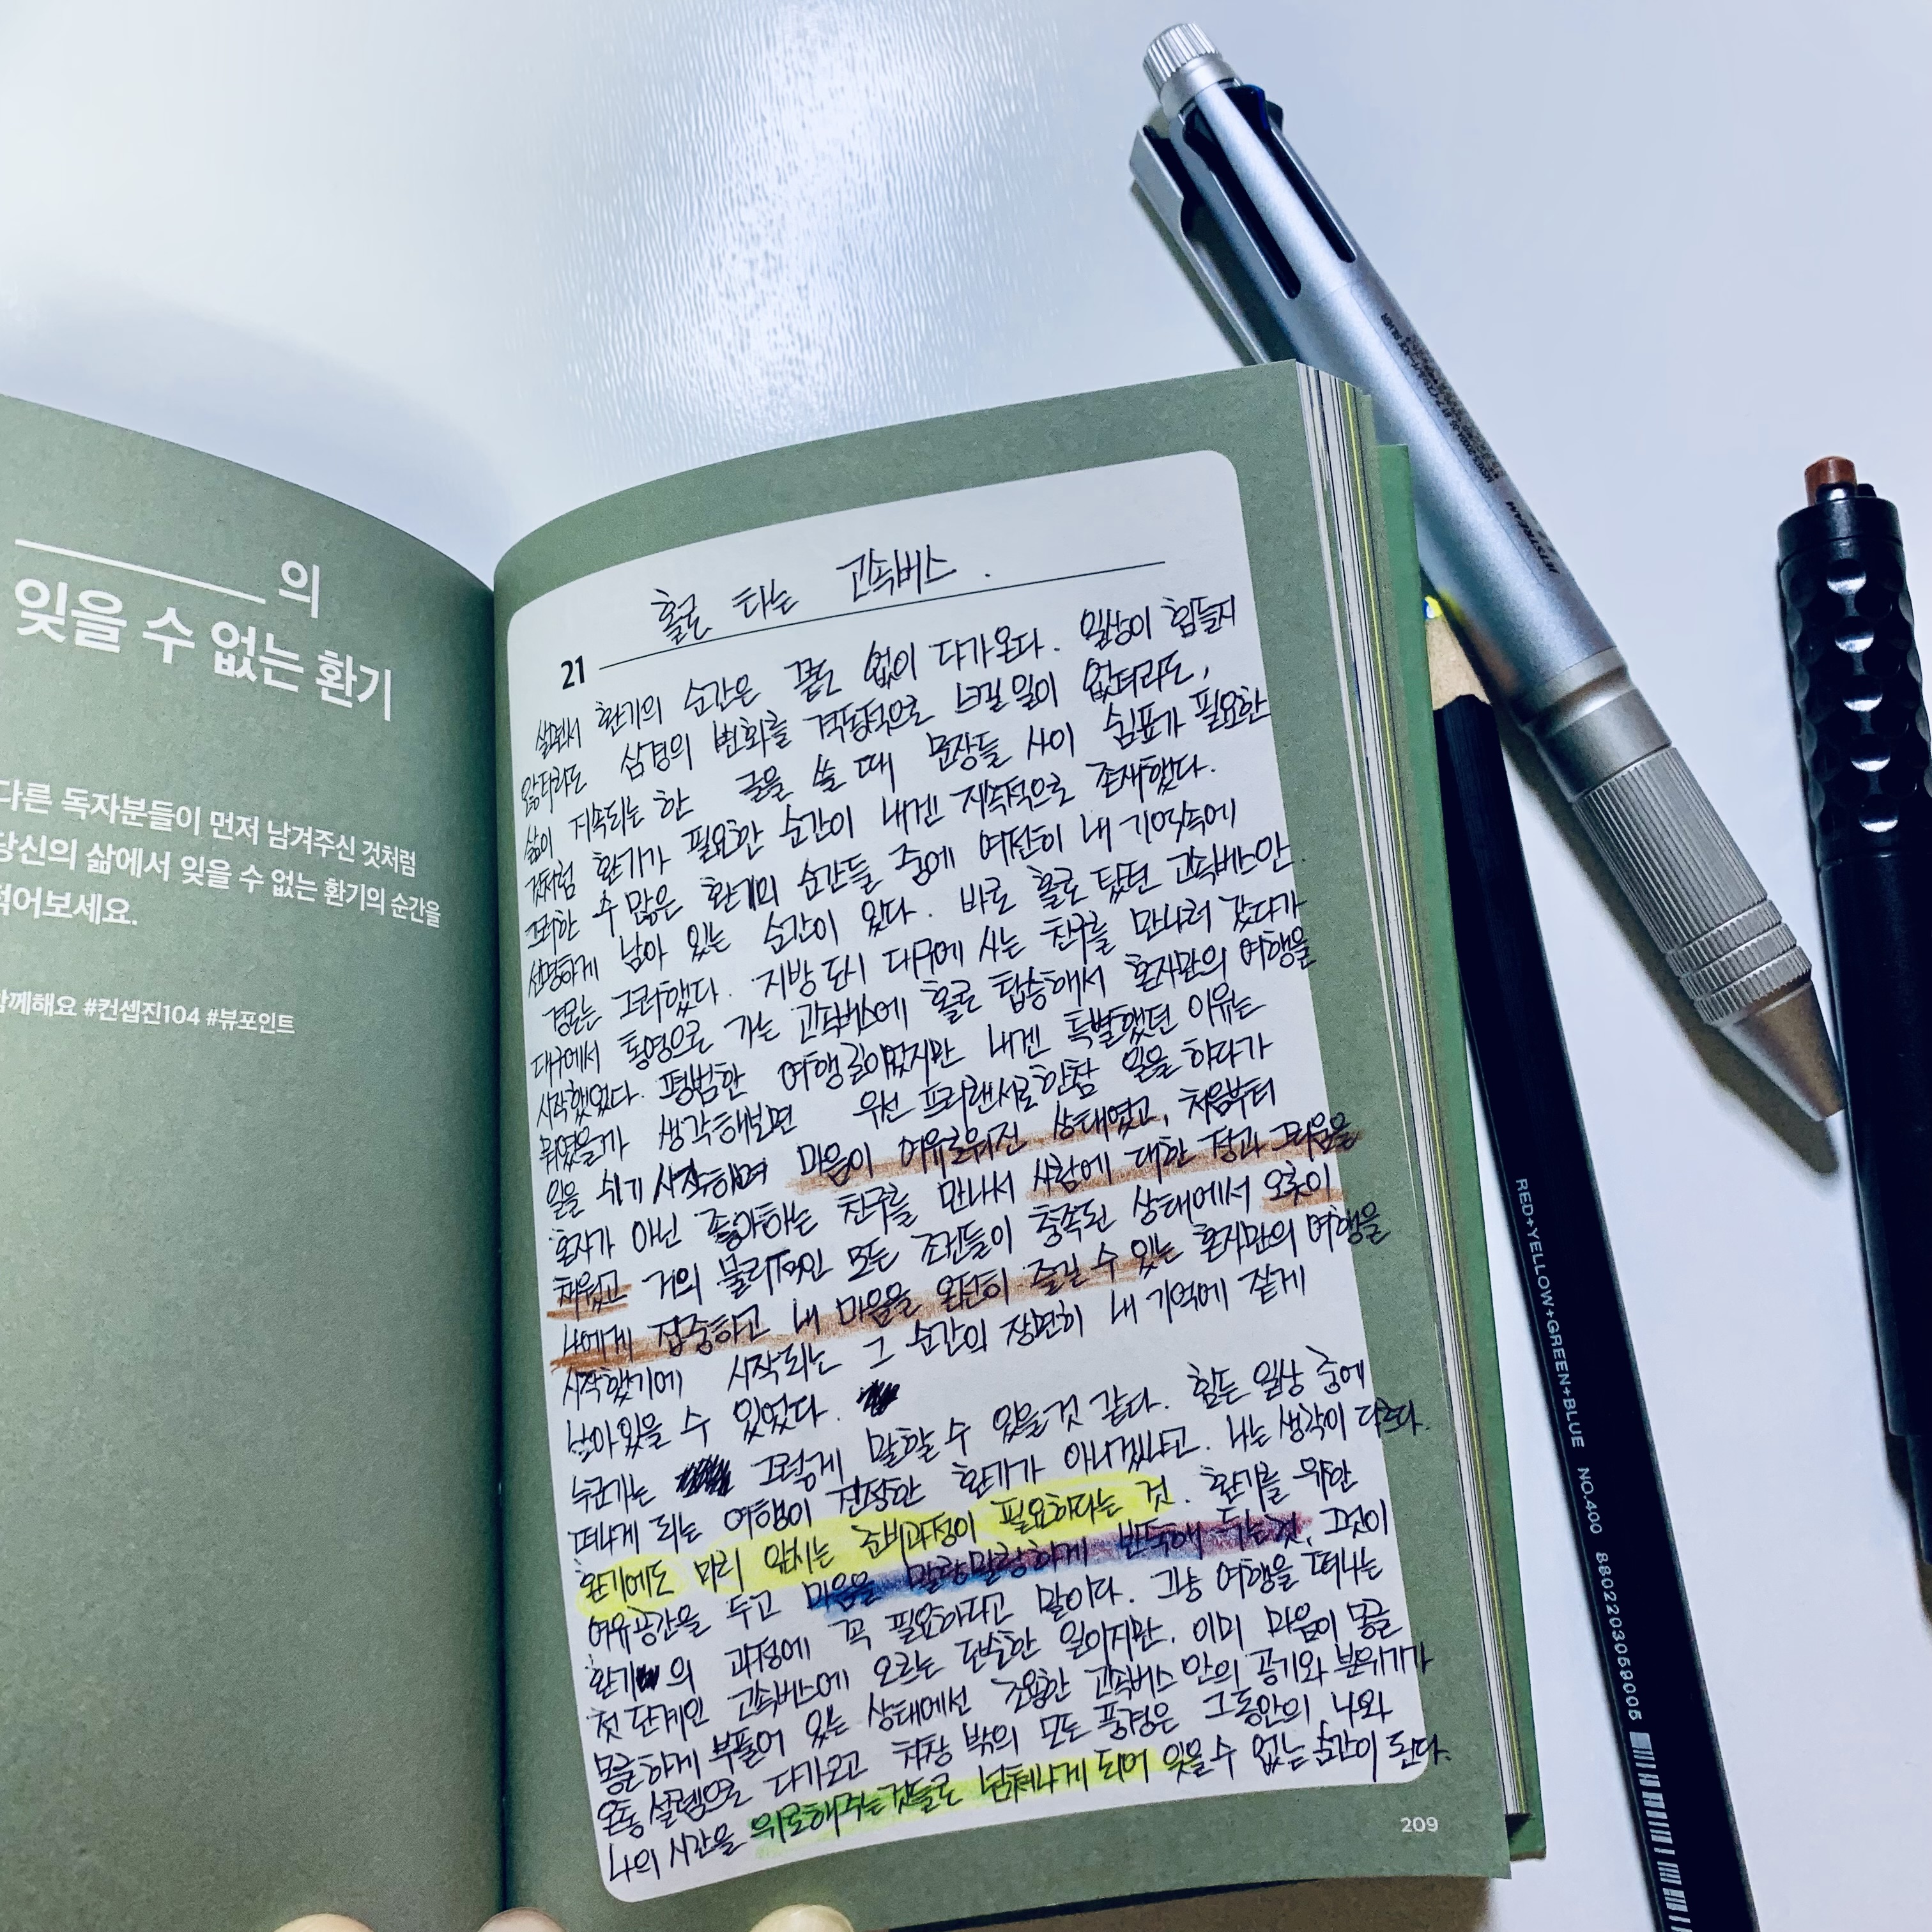 의
잊을 수 없는 환기
다른 독자분들이 먼저 남겨주신 것처럼
당신의 삶에서 잊을 수 없는 환기의 순간을
적어보세요.
함께해요 #컨셉진104 #뷰포인트
홀로 타는 고속버스.
21
살면서 환기의 순간은 끝도 없이 다가온다. 일상이 힘들지
않더라도 삼경의 변화를 격동적으로 느낄 일이 없더라도,
삶이 지속되는 한 글을 쓸 때 문장들 사이 쉼표가 필요한
것처럼 환기가 필요한 순간이 내겐 지속적으로 존재했다.
그러한 수 많은 환기의 순간들 중에 여전히 내 기억속에
선명하게 남아 있는 순간이 있다. 바로 홀로 탔던 고속버스안
경문는 그러했다. 지방 도시 대구에 사는 친구를 만나러 갔다가
대구에서 통영으로 가는 고속버스에 홀로 탑승해서 혼자만의 여행을
시작했었다. 평범한 여행길이었지만 내겐 특별했던 이유는
뭐였을까 생각해보면 우선 프리랜서로 한참 일을 하다가
일을 쉬기 시작하며 마음이 여유로워진 상태였고, 처음부터
혼자가 아닌 좋아하는 친구를 만나서 사람에 대한 정과 그리움을
채웠고 거의 물리적인 모든 조건들이 충족된 상태에서 오롯이
나에게 집중하고 내 마음을 온전히 즐길 수 있는 혼자만의 여행을
시작했기에 시작되는 그 순간의 장면히 내 기억에 짙게
남아있을 수 있었다.
누군가는 그렇게 말할 수 있을 것 같다. 힘든 일상 중에
떠나게 되는 여행이 진정한 환기가 아니겠냐고. 나는 생각이 다르다.
환기에도 미리 앞서는 준비과정이 필요하다는 것. 환기를 위한
여유공간을 두고 마음을 말랑말랑하게 반죽해 두는것, 그것이
환기의 과정에 꼭 필요하다고 말이다. 그냥 여행을 떠나는
첫 단계인 고속버스에 오르는 단순한 일이지만, 이미 마음이 몽글
몽글하게 부풀어 있는 상태에선 조용한 고속버스 안의 공기와 분위기가
온통 설렘으로 다가오고 차창 밖의 모든 풍경은 그동안의 나와
나의 시간을 위로해주는 것들로 넘쳐나게 되어 잊을 수 없는 순간이 된다.
209
JETSTREAM
RED+YELLOW+GREEN+BLUE NO.400 8802203059005